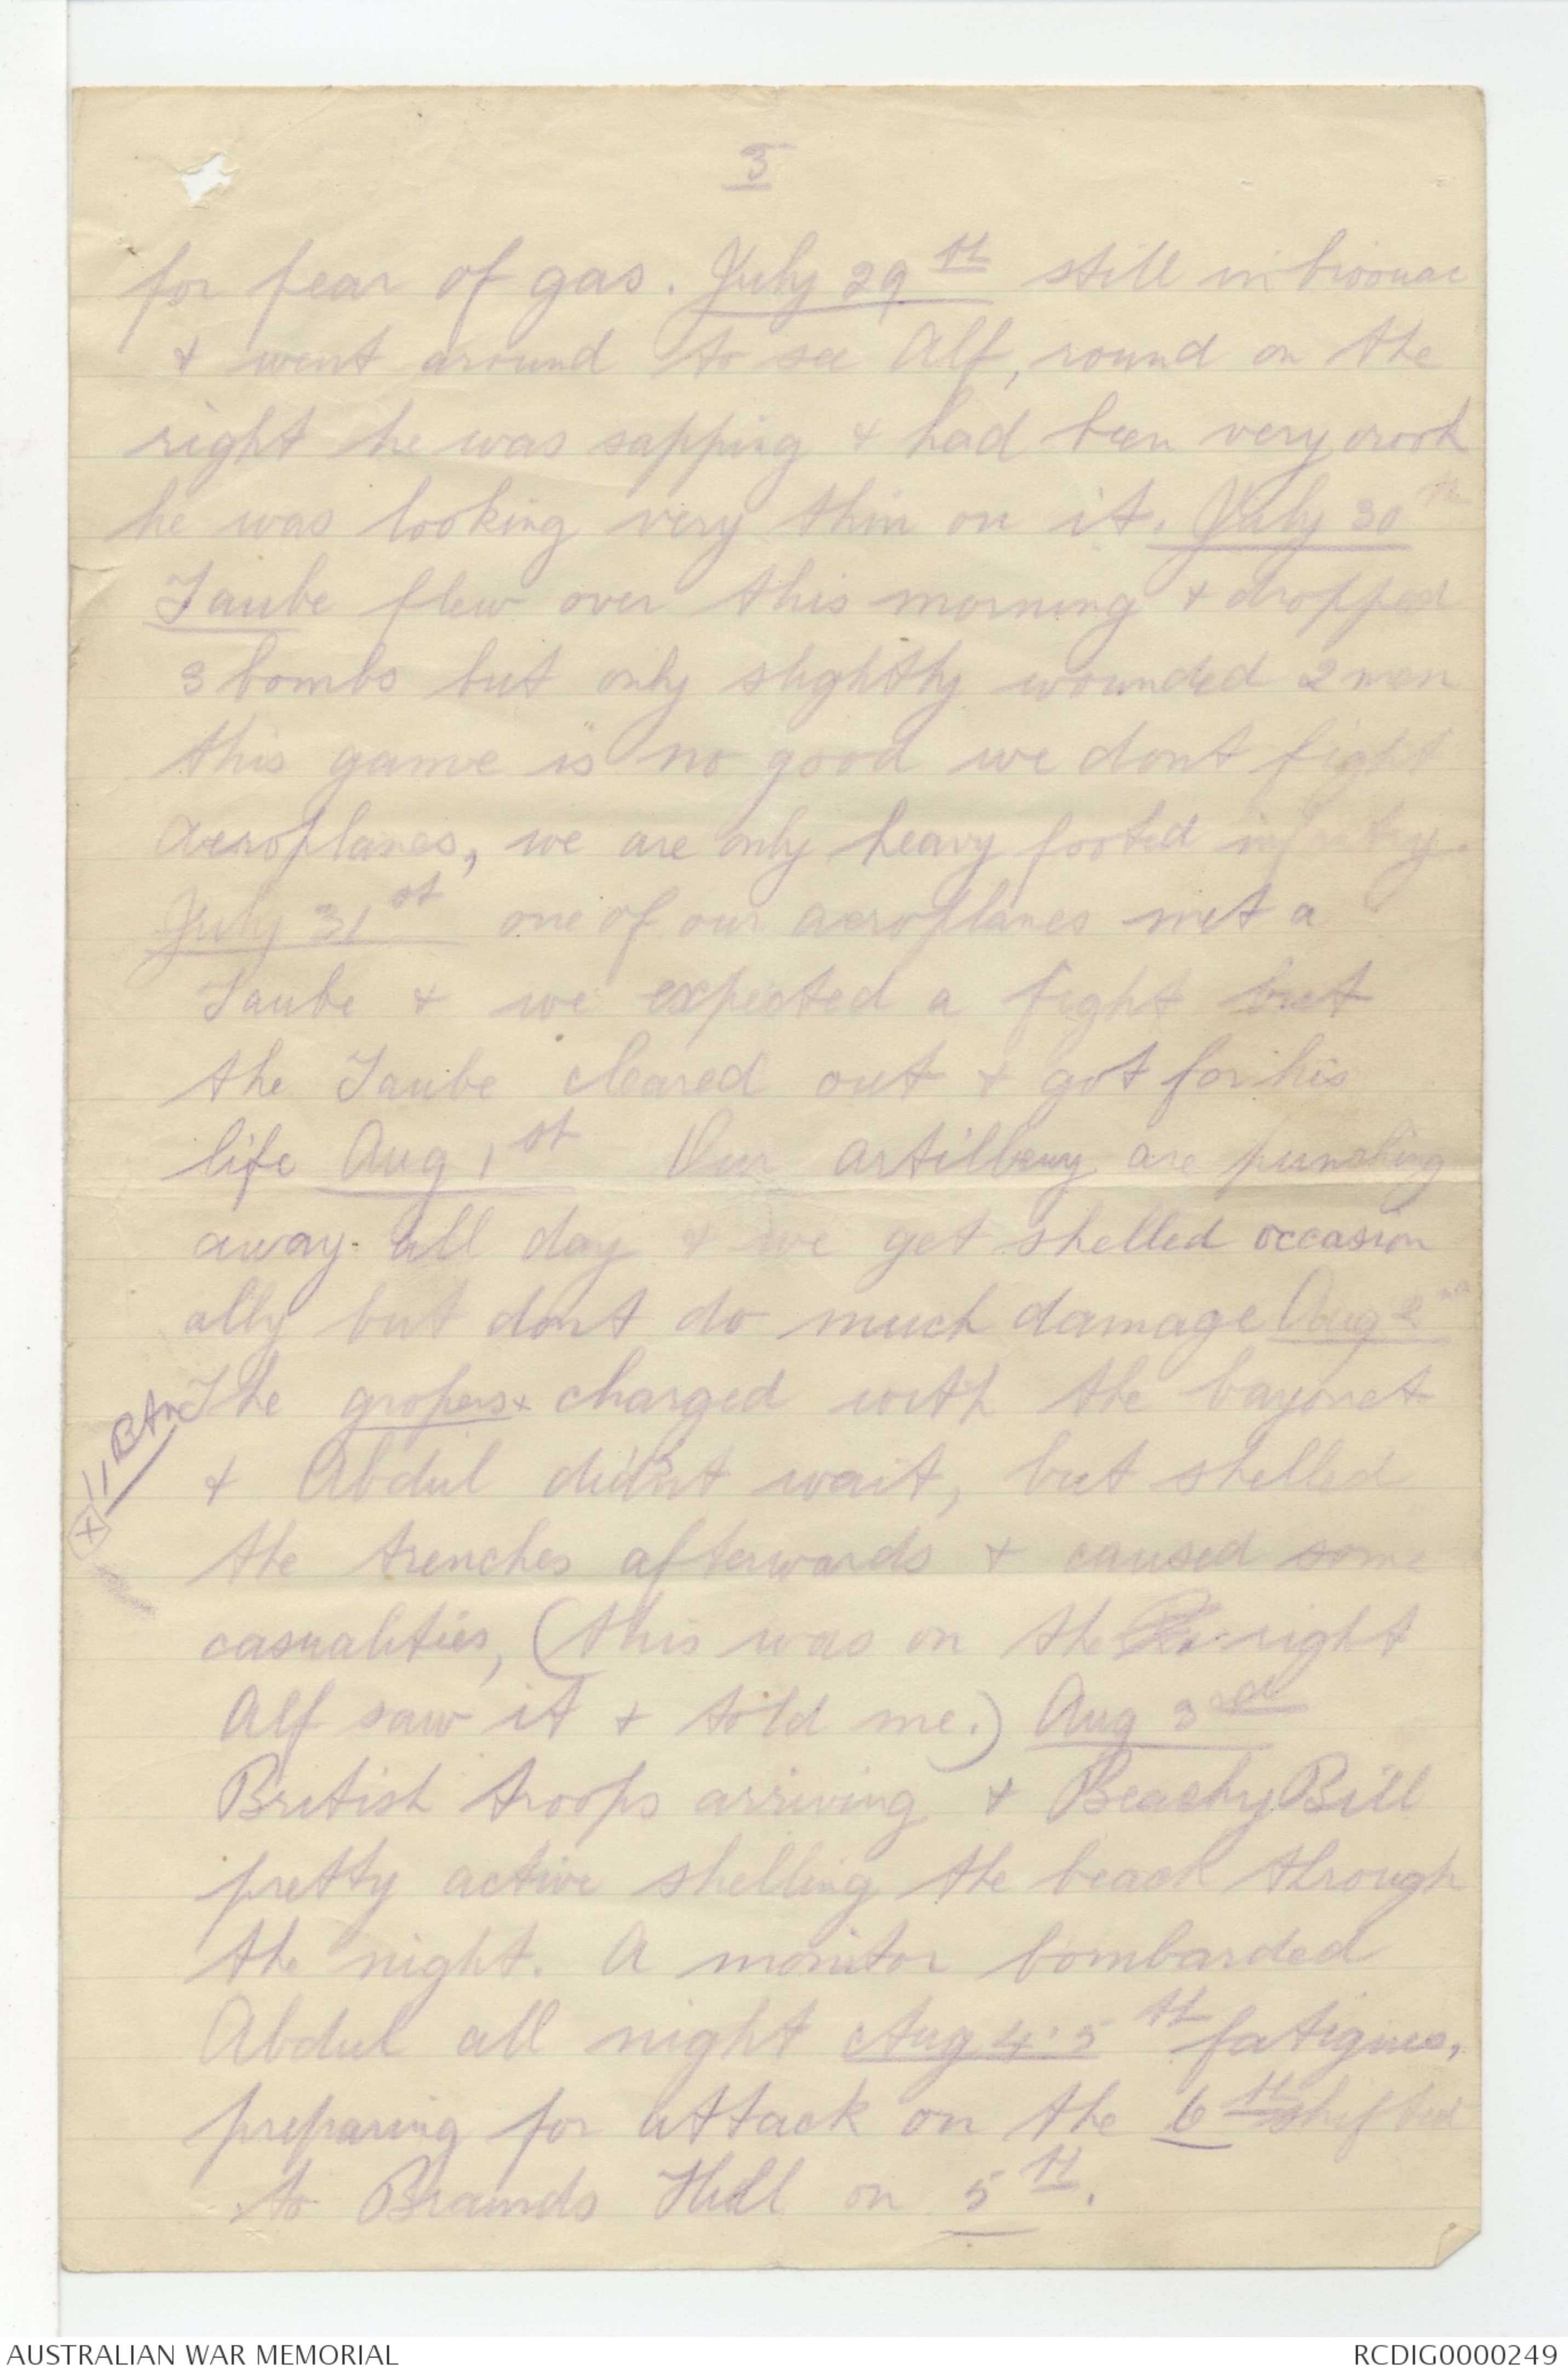 3
for fear of gas. July 29th still in bivouac
+ went around to see Alf, round on the
right he was sapping + had been very crook
he was looking very thin on it. July 30th
Taube flew over this morning + dropped
3 bombs but only slightly wounded 2 men
this game is no good we dont fight
aeroplanes, we are only heavy footed infantry.
July 31st one of our aeroplanes met a
Taube + we expected a fight but
the Taube cleared out + got for his
life Aug 1st Our artillery are
away all day + we get shelled occasion
ally but dont do much damage Aug 2nd
The gropers x charged with the bayonet
x 11 Btn
+ Abdul didn't wait, but shelled
the trenches afterwards + caused some
casualities, (this was on the right
Alf saw it + told me.) Aug 3rd
British troops arriving + Beachy Bill
pretty active shelling the beach through
the night. A monitor bombarded
Abdul all night Aug 4.5th fatigues,
preparing for attack on the 6th shifted
to Braunds Hill on 5th.
AUSTRALIAN WAR MEMORIAL
RCDIG0000249